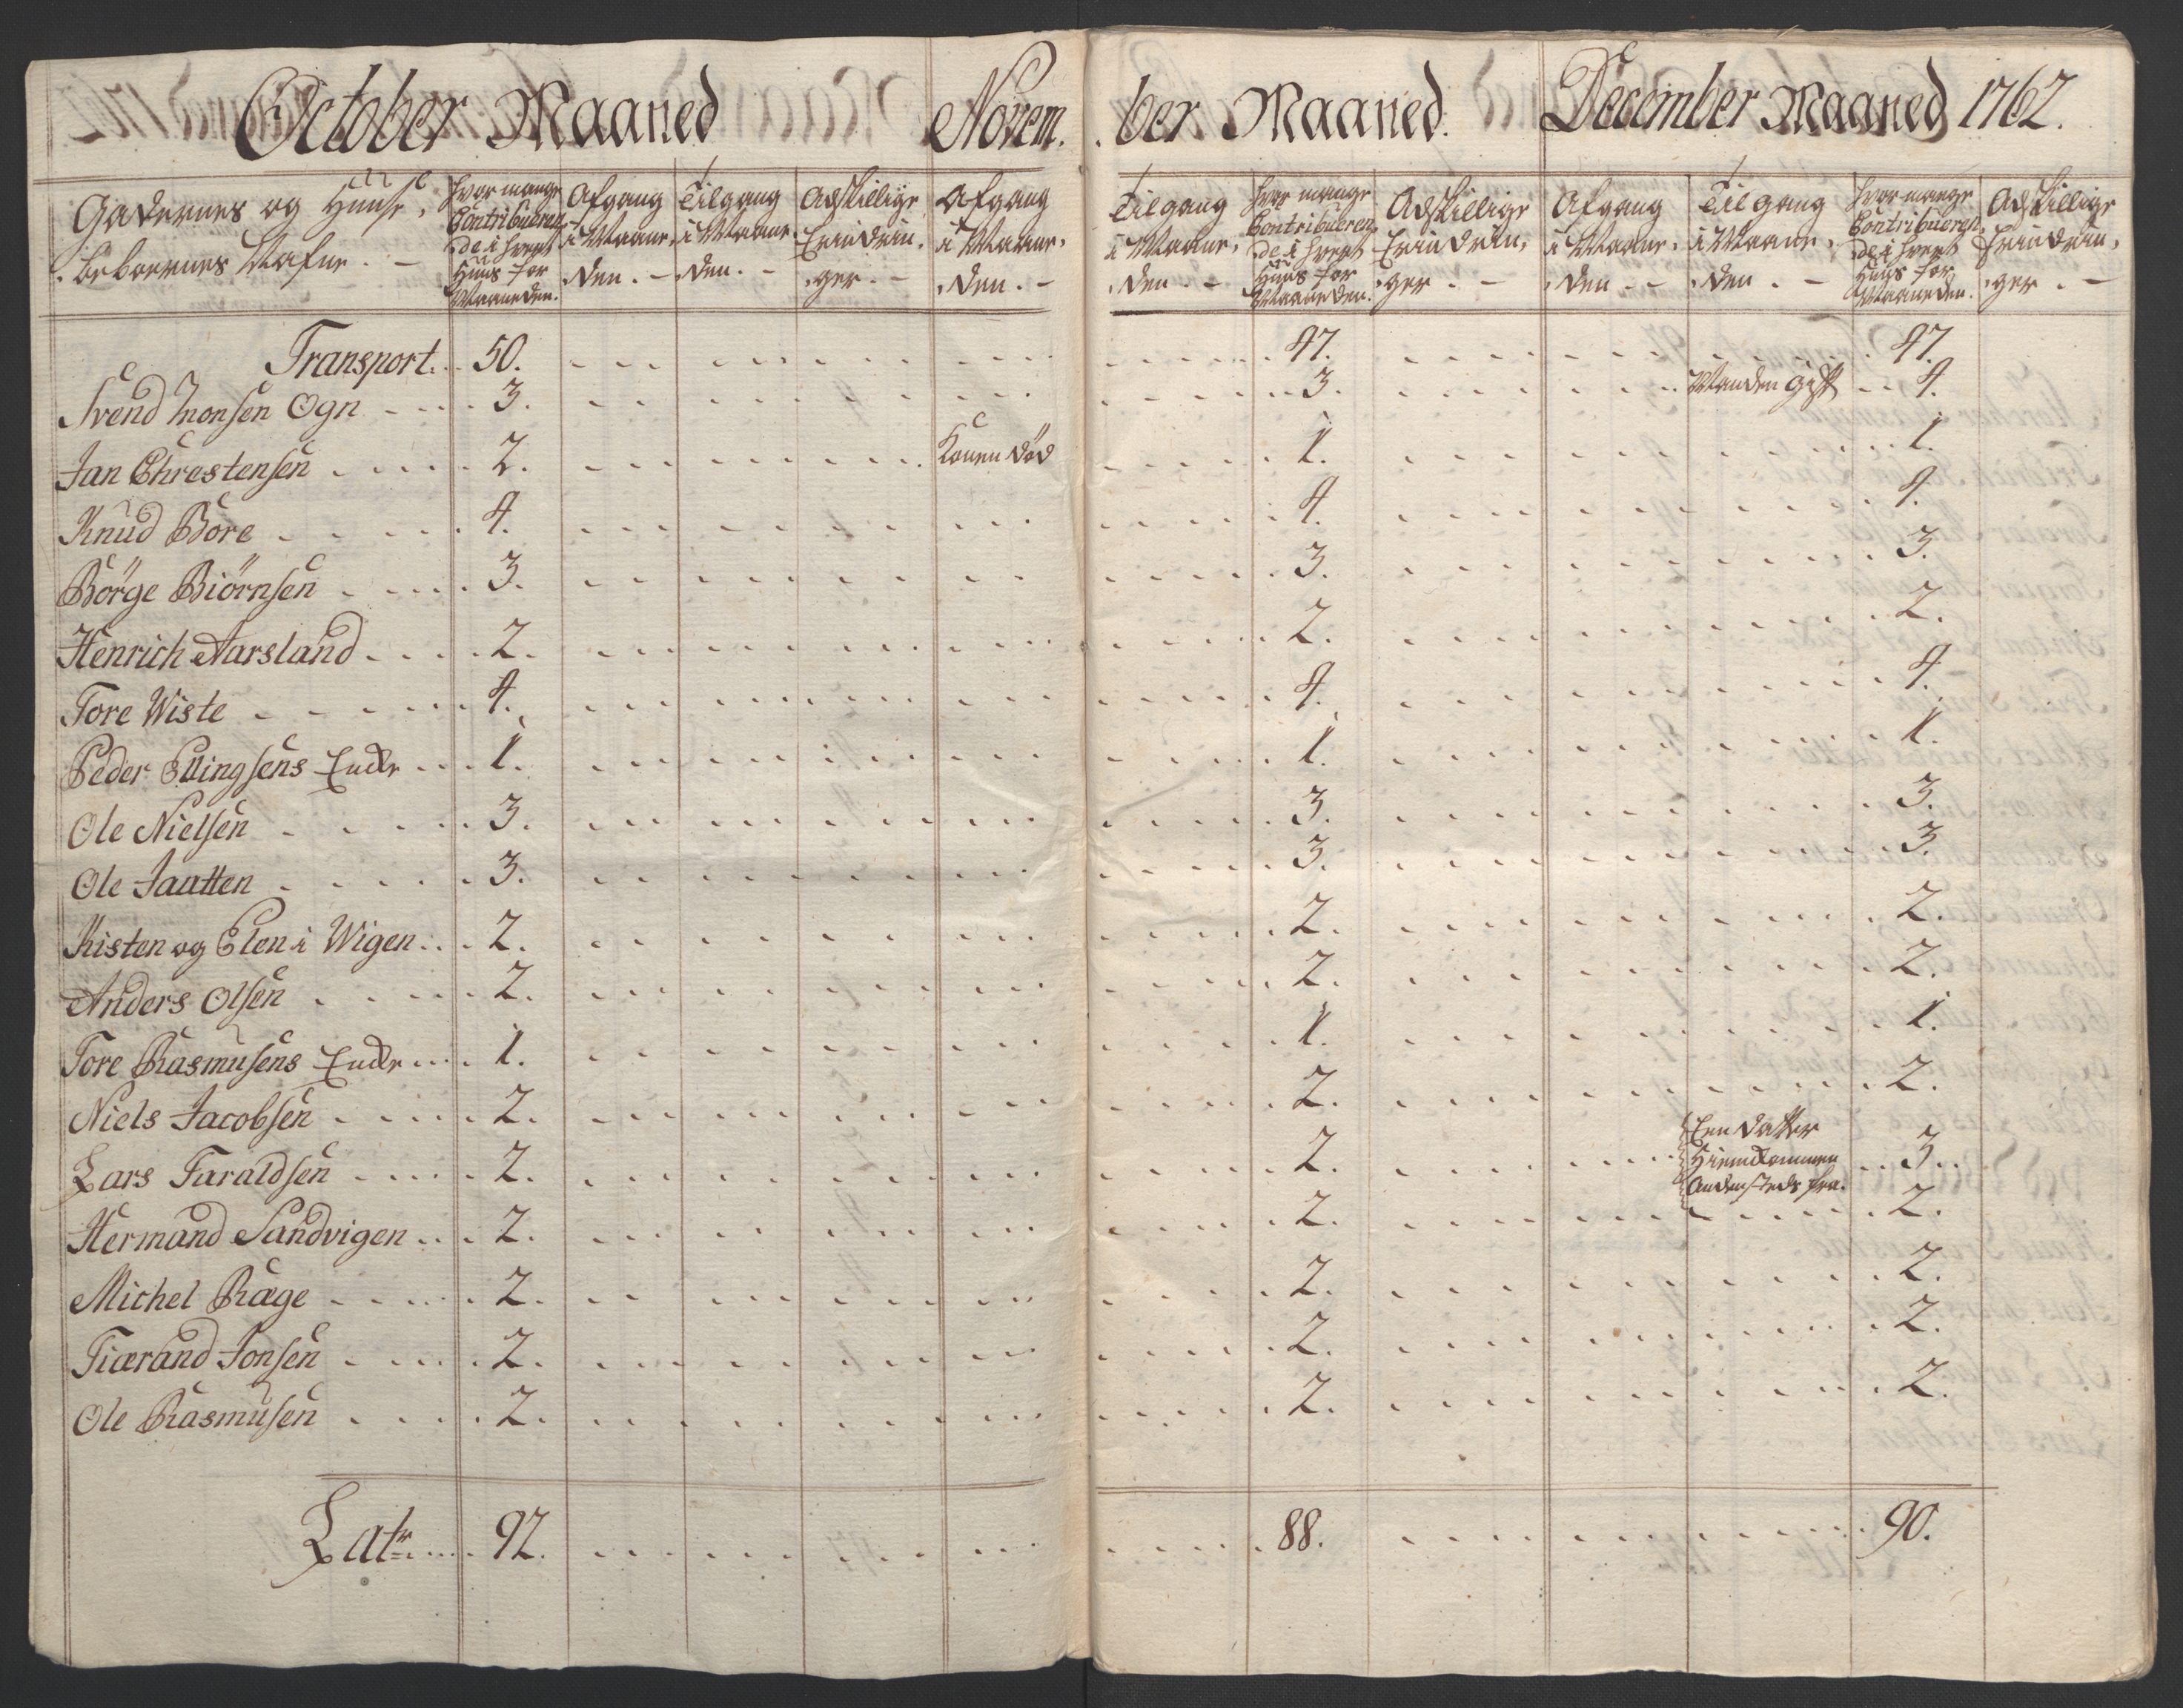 October Maaned Novem. . ber Maaned. December Maaned 1762.
Gadernes og Huuse, beboernes Nafne. - | hvor mange Contribueren, de i hvert Huus for Maaneden. | Afgang i Maane, den. - | Tilgang i Maane, den. - | Adskillige Erindrin, ger. - | Afgang i Maane, den. - | Tilgang i Maane, den. - | hvor mange Contribueren, de i hvert Huus for Maaneden. | Adskillige Erindrin, ger. - | Afgang i Maane, den. - | Tilgang i Maane, den. - | hvor mange Contribueren, de i hvert Huus for Maaneden. | Adskillige Erindrin, ger. -
Transport. 50. 47. 47.
Svend Monsen Ogn 3. 3. Manden gift 4.
Jan Chrestensen 2. Konen død 1. 1.
Knud Bore 4. 4. 4.
Börge Biörnsen 3. 3. 3.
Henrich Aarsland 2. 2. 2.
Tore Wiste 4. 4. 4.
Peder Ellingsens Enche 1. 1. 1.
Ole Nielsen 3. 3. 3.
Ole Jautten 3. 3. 3.
Kisten og Elen i Wigen 2. 2. 2.
Anders Olsen 2. 2. 2.
Tore Rasmusens Enche 1. 1. 1.
Niels Jacobsen 2. 2. 2.
Lars Taraldsen 2. 2. Een Datter Hiemkommen Andensteds fra. 3.
Hermand Sandvigen 2. 2. 2.
Michel Rage 2. 2. 2.
Tiærand Jonsen 2. 2. 2.
Ole Rasmusen 2. 2. 2.
Latr. 92. 88. 90.